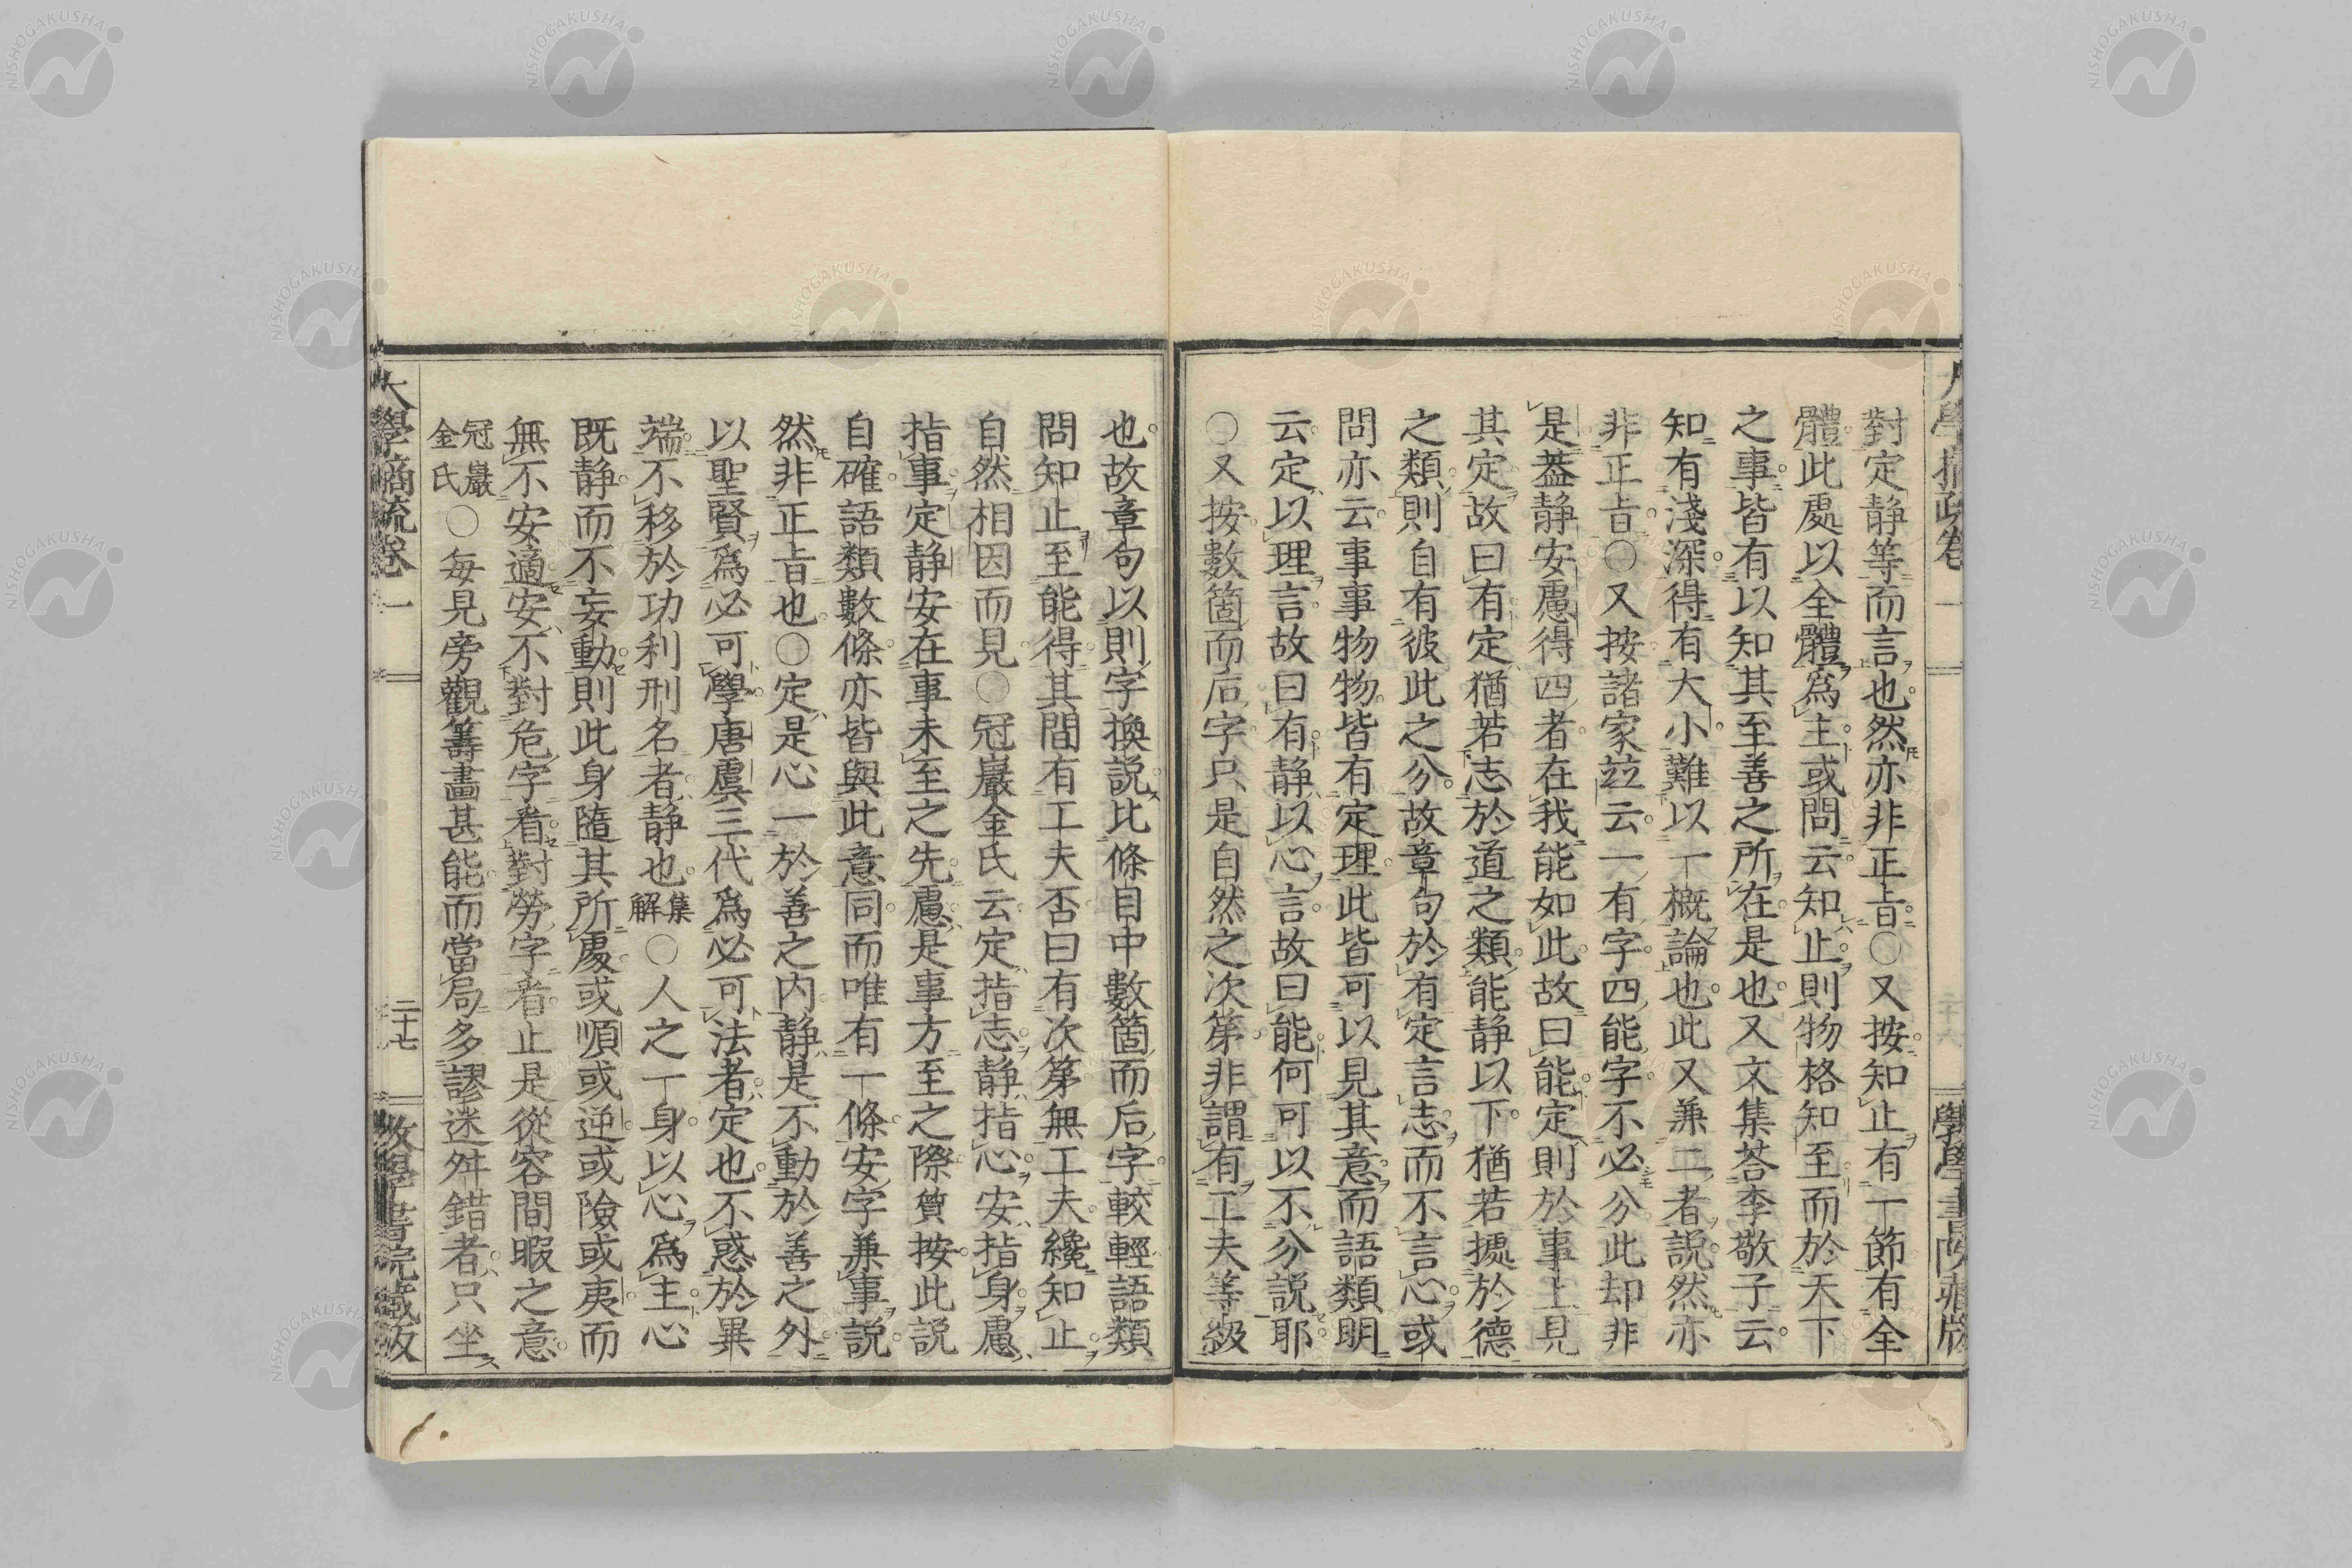 對定静等而言也然亦非正旨〇又按知止有一節有全
體此處以全體爲主或問云知止則物格知至而於天下
之事皆有以知其至善之所在是也又文集荅李敬子云
知有淺深得有大小難以一概論也此又兼二者説然亦
非正旨〇又按諸家竝云一有字四能字不必分此却非
是葢静安慮得四者在我能如此故曰能定則於事上見
其定故曰有定猶若志於道之類能静以下猶若據於德
之類則自有彼此之分故章句於有定言志而不言心或
問亦云事事物物皆有定理此皆可以見其意而語類明
云定以理言故曰有静以心言故曰能何可以不分説耶
〇又按數箇而后字只是自然之次第非謂有工夫等級
也故章句以則字換説比條目中數箇而后字較輕語類
問知止至能得其間有工夫否曰有次第無工夫纔知止
自然相因而見〇冠巖金氏云定指志静指心安指身慮
指事定静安在事未至之先慮是事方至之際質按此説
自確語類數條亦皆與此意同而唯有一條安字兼事説
然非正旨也〇定是心一於善之内静是不動於善之外
以聖賢爲必可學唐虞三代爲必可法者定也不惑於異
端不移於功利刑名者静也集解〇人之一身以心爲主心
既静而不妄動則此身隨其所處或順或逆或險或夷而
無不安適安不對危字看對勞字看止是從容間暇之意
冠巖金氏〇每見旁觀籌畫甚能而當局多謬迷舛錯者只坐
大學摘疏卷一
二十七